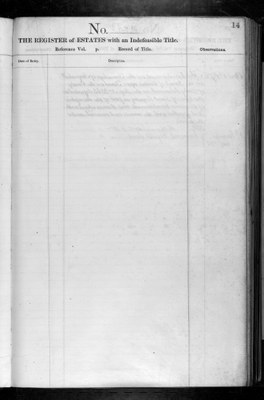 14
No.
THE REGISTER of ESTATES with an Indefeasible Title.
Reference Vol. p. Record of Title. Observations.
Date of Entry. Description.